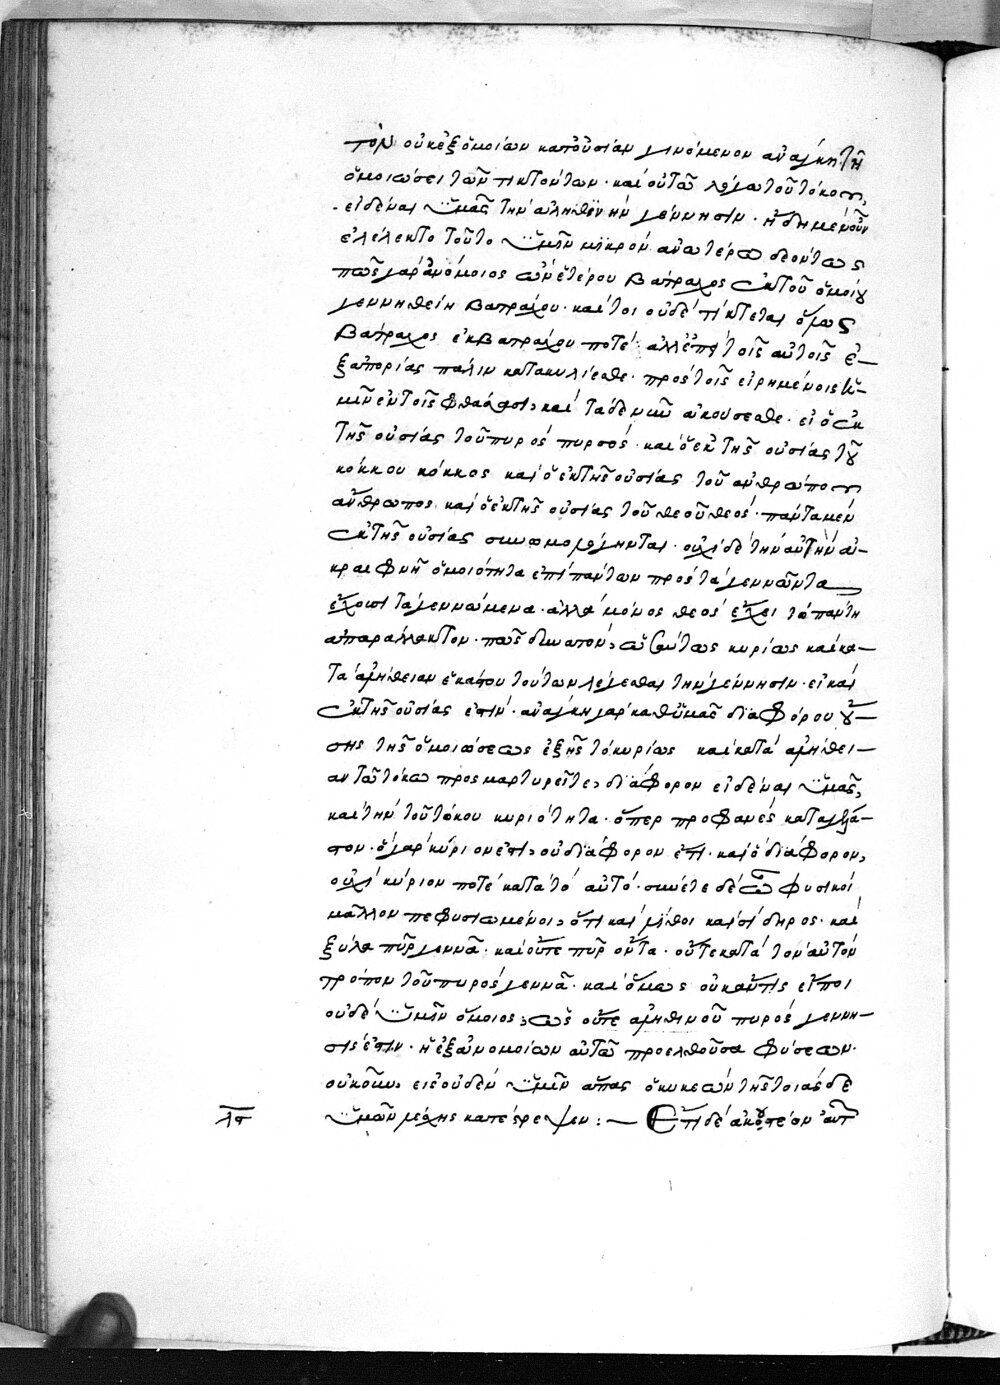 τὸν οὐκ ἐξ ὁμοίων κατ' οὐσίαν γινόμενον ἀνάγκη τῇ
ὁμοιώσει τῶν τικτόντων· καὶ οὕτω λόγω τοῦ τόκου
εἰδέναι ὑμᾶς τὴν ἀληθινὴν γέννησιν· ἤδη μὲν οὖν
ἐλέλεκτο τοῦτο ὑμῖν μικρὸν ἀνωτέρω δεόντως
πῶς γὰρ ἀνόμοιος ὢν ἑτέρου βάτραχος ἐκ τοῦ ὁμοίου
γεννηθείη βατράχου· καί τοι οὐδὲ τίκτεται ὅμως
βάτραχος ἐκ βατράχου ποτέ· ἀλλ' ἐπεὶ τοῖς αὐτοῖς ἐ-
ξ ἀπορίας πάλιν κατακυλίεσθε· πρὸς τοῖς εἰρημένοις ὑ-
μῖν ἐν τοῖς φθάσασι, καὶ τὰ δε νῦν ἀκούσεσθε· εἰ ὁ ἐκ
τῆς οὐσίας τοῦ πυρὸς πυρσός· καὶ ὁ ἐκ τῆς οὐσίας τοῦ
κόκκου κόκκος καὶ ὁ ἐκ τῆς οὐσίας τοῦ ἀνθρώπου
ἄνθρωπος καὶ ὁ ἐκ τῆς οὐσίας τοῦ θεοῦ θεός· πάντα μὲν
ἐκ τῆς οὐσίας συνωμολόγηνται· οὐχὶ δὲ τὴν αὐτὴν ἀ-
κραιφνῆ ὁμοιότητα ἐπὶ πάντων πρὸς τὰ γεννῶντα
ἔχουσι τὰ γεννώμενα· ἀλλὰ μόνος θεὸς ἔχει τὸ πάντη
ἀπαράλλακτον· πῶς δυνατὸν, ὡσαύτως κυρίως καὶ κα-
τὰ ἀλήθειαν ἑκάστου τούτων λέγεσθαι τὴν γέννησιν· εἰ καὶ
ἐκ τῆς οὐσίας ἐστίν· ἀνάγκη γὰρ καθ' ὑμᾶς διαφόρου οὔ-
σης τῆς ὁμοιώσεως ἐξ ἧς τὸ κυρίως καὶ κατὰ ἀλήθει-
αν τῶ τόκω προσμαρτυρεῖτε, διάφορον εἰδέναι ὑμᾶς,
καὶ τὴν τοῦ τόκου κυριότητα· ὅπερ προφανὲς καταγέλα-
στον· ὃ γὰρ κύριον ἐστι, οὐ διάφορον ἐστι· καὶ ὃ διάφορον,
οὐχὶ κύριον ποτὲ κατὰ τὸ αὐτό· συνίετε δὲ ὦ φυσικοὶ
μᾶλλον πεφυσιωμένοι, ὅτι καὶ λίθοι καὶ σίδηρος· καὶ
ξύλα πῦρ γεννᾶ· καὶ οὔτε πῦρ ὄντα· οὔτε κατὰ τὸν αὐτὸν
τρόπον τοῦ πυρὸς γεννᾶ· καὶ ὅμως οὐκ ἄν τις εἴποι
οὐδὲ ὑμῖν ὅμοιος, ὡς οὔτε ἀληθινοῦ πυρὸς γέννη-
σις ἐστιν· ἢ ἐξ ἀνομοίων αὐτῶ προελθοῦσα φύσεων·
οὐκοῦν εἰς οὐδὲν ὑμῖν ἅπας ὁ κυκεὼν τῆς τοιᾶσδε
ὑμῶν μάχης κατέστρεψεν : — Ἔτι δὲ ἀκουστέον αὐτ
λστ